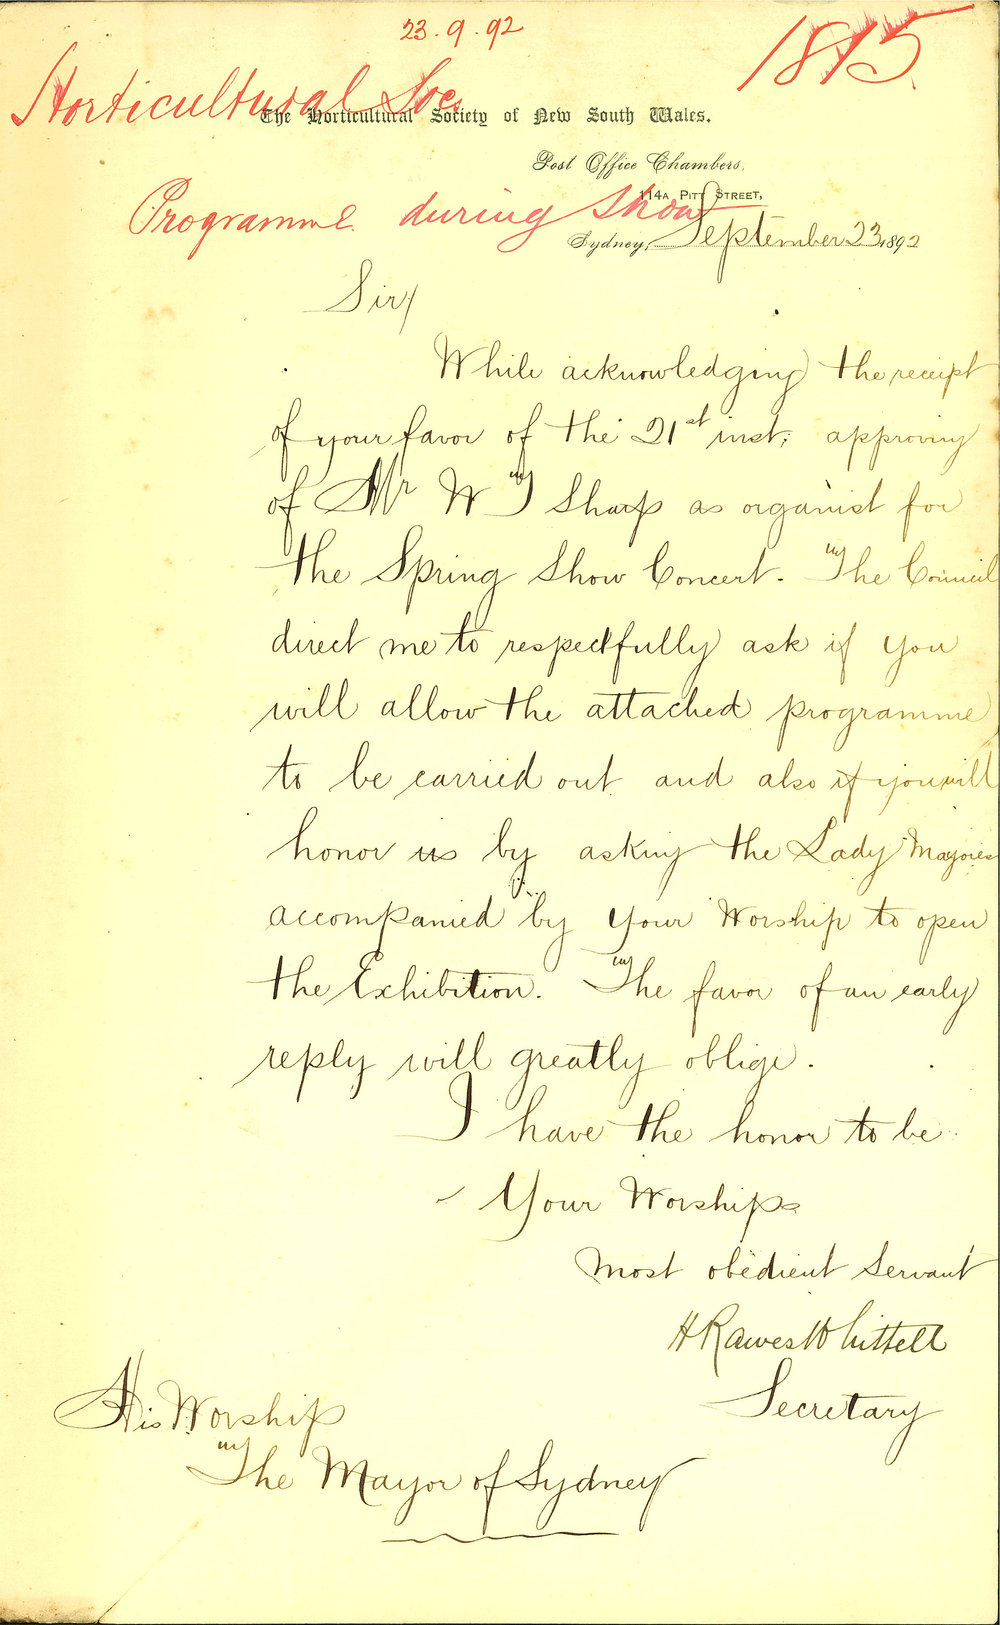 23.9.92
1815
Horticultural Soc
The Horticultural Society of New South Wales.
Post Office Chambers,
114A Pitt Street,
Programme during Show
Sydney, September 23 1892
Sir/
While acknowledging the receipt
of your favor of the 21st inst; approving
of Mr W J Sharp as organist for
the Spring Show Concert. The Council
direct me to respectfully ask if you
will allow the attached programme
to be carried out and also if you will
honor us by asking the Lady Mayoress
accompanied by your Worship to open
the Exhibition. The favor of an early
reply will greatly oblige.
I have the honor to be
Your Worships
most obedient Servant
H Rawes Whittell
Secretary
His Worship
The Mayor of Sydney